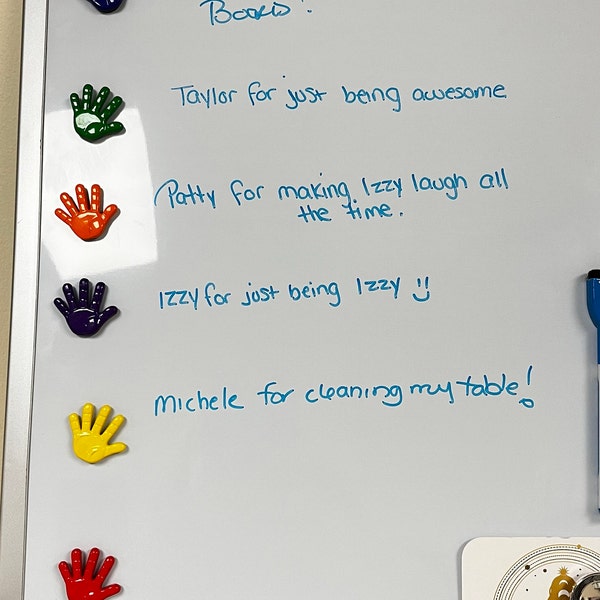 Books!
Taylor for just being awesome
Patty for making Izzy laugh all
the time.
Izzy for just being Izzy !!
Michele for cleaning my table!